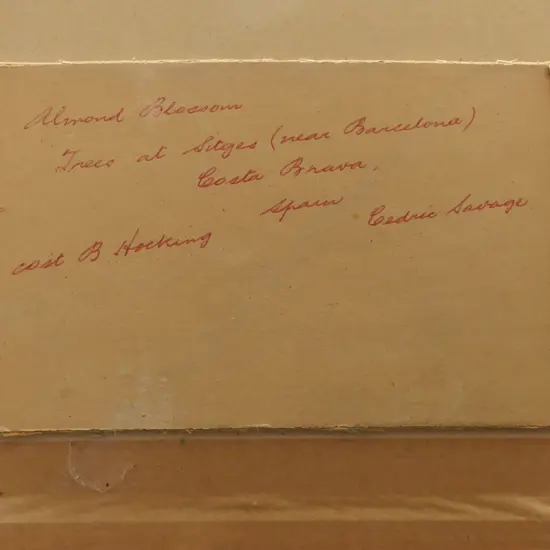 Almond Blossom
Trees at Sitges (near Barcelona)
Costa Brava.
Spain
Cedric Savage
cost B Hocking